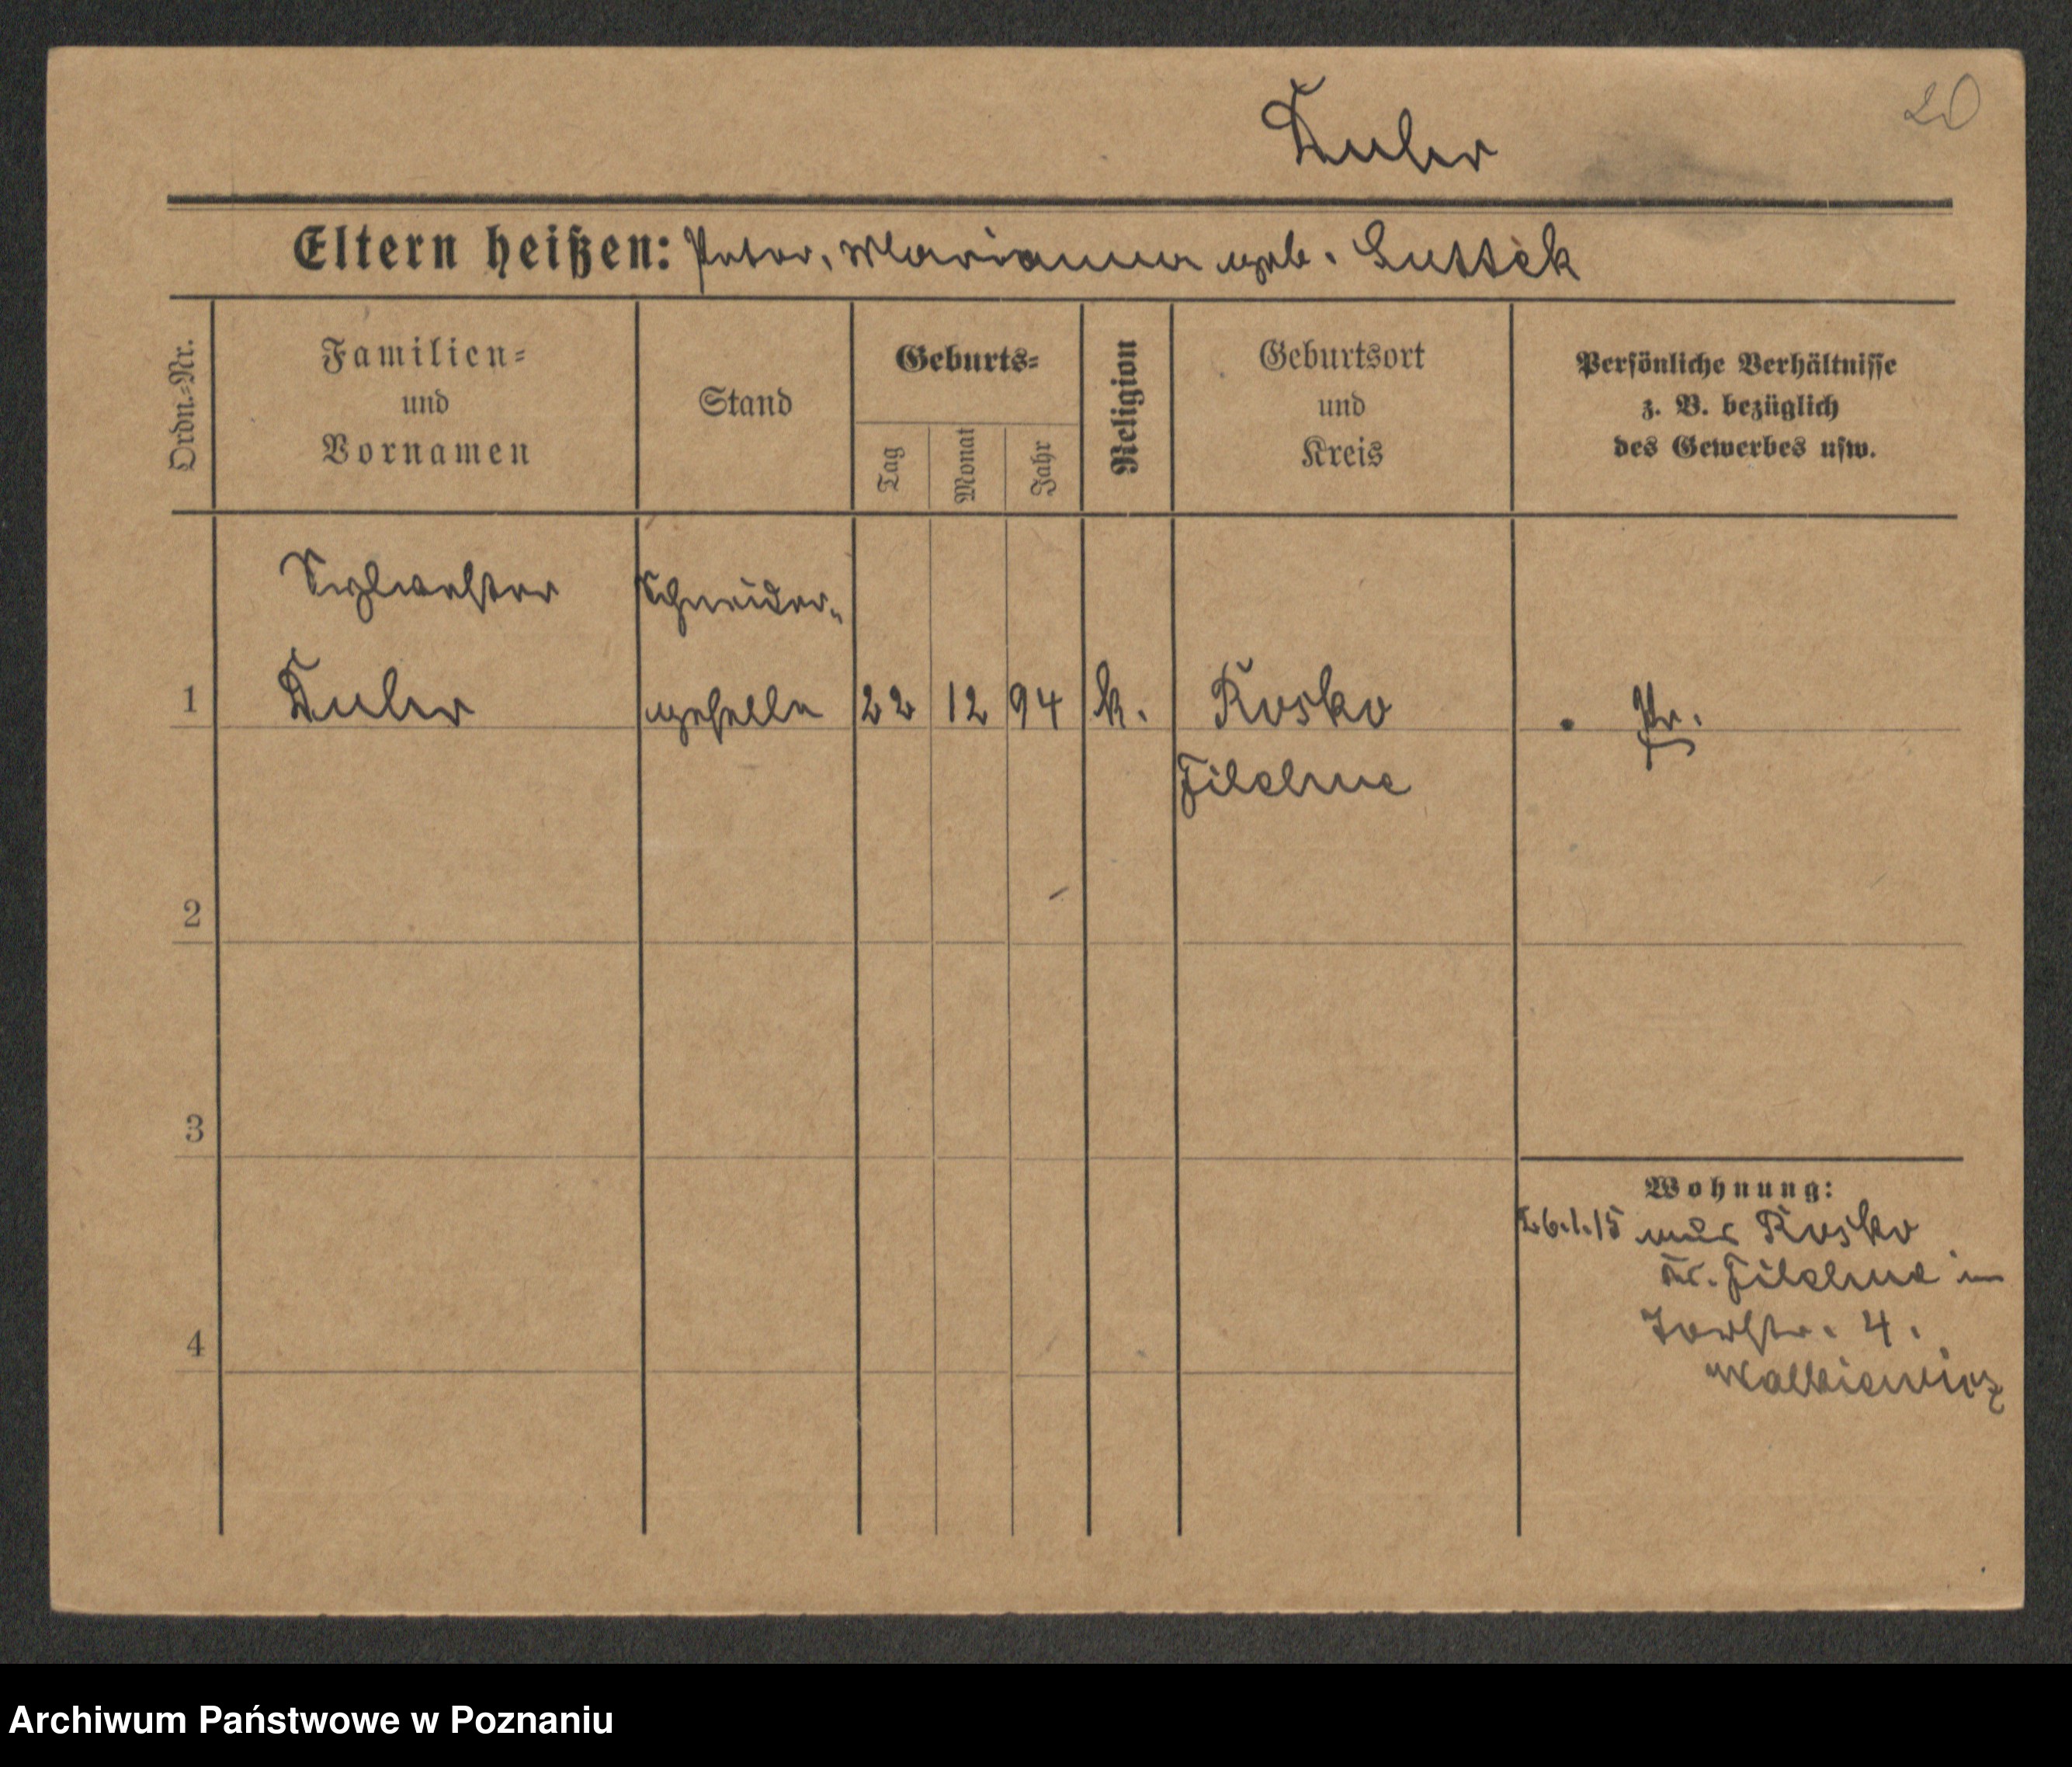 20
Kuler
Eltern heißen: Peter, Marianna geb.
Ordn.-Nr.
Familien-
und
Vornamen
Stand
Geburts-
Tag
Monat
Jahr
Religion
Geburtsort
und
Kreis
Persönliche Verhältnisse
z. B. bezüglich
des Gewerbes usw.
Sylwester Schneider-
1 Kuler geselle 22 12 94 k. Rosko Pr.
Filehne
2
3
4
Wohnung:
26.1.15 aus Rosko
Kr. Filehne in
Torstr. 4.
Walkiewicz
Archiwum Państwowe w Poznaniu